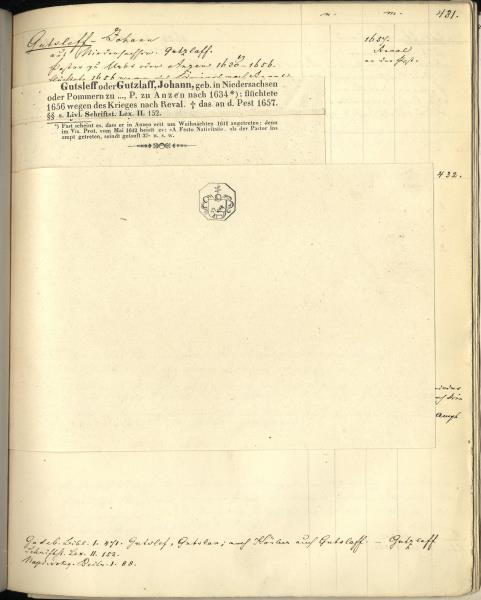 n. m. 431.
Gutsleff Johann 1657.
aus Niedersachsen. Gutzlaff. Reval
Pastor zu Anzen 1630-1656. an der Pest.
Gutsleff oder Gutzlaff, Johann, geb. in Niedersachsen
oder Pommern zu ..., P. zu Anzen nach 1634*); flüchtete
1656 wegen des Krieges nach Reval. † das. an d. Pest 1657.
§§ s. Livl. Schriftst. Lex. II. 152.
*) Fast scheint es, dass er in Anzen seit um Weihnachten 1641 angetreten; denn
im Vis. Prot. vom Mai 1642 heisst es: »A Festo Nativitatis, als der Pastor ins
ampt getreten, seindt getauft 37« u. s. w.
432.
Gadeb. Bibl. I. 471. Gutslef, Gutslav; auch Körber auch Gutslaff. — Gutzlaff
Schriftst. Lex. II. 152.
Napiersky. Beitr. I. 88.